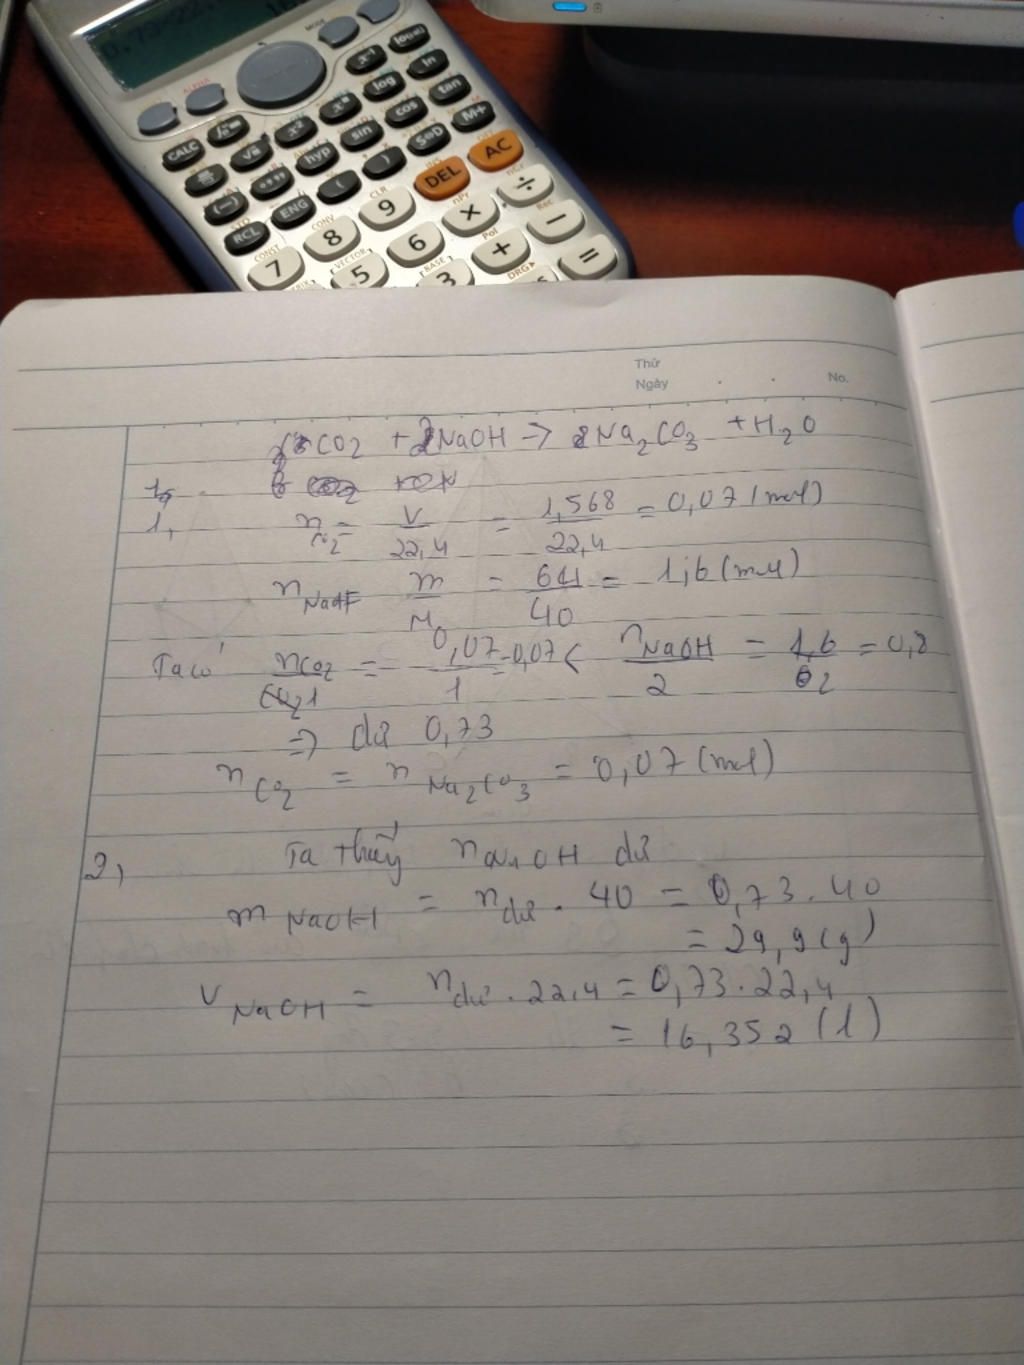 CALC
log
ln
x²
hyp
sin
cos
tan
(—)
S⇔D
M+
RCL
ENG
(
)
DEL
AC
7
8
9
×
÷
5
6
+
−
3
=
Thứ
Ngày
No.
CO2 + 2NaOH → Na2CO3 + H2O
1,
nCO2 = V/22,4 = 1,568/22,4 = 0,07 (mol)
nNaOH m/M = 64/40 = 1,6 (mol)
Ta có nCO2/1 = 0,07/1 = 0,07 < nNaOH/2 = 1,6/2 = 0,8
=> dư 0,73
nCO2 = nNa2CO3 = 0,07 (mol)
2,
Ta thấy nNaOH dư
mNaOH = ndư . 40 = 0,73 . 40
= 29,9 (g)
VNaOH = ndư . 22,4 = 0,73 . 22,4
= 16,352 (l)